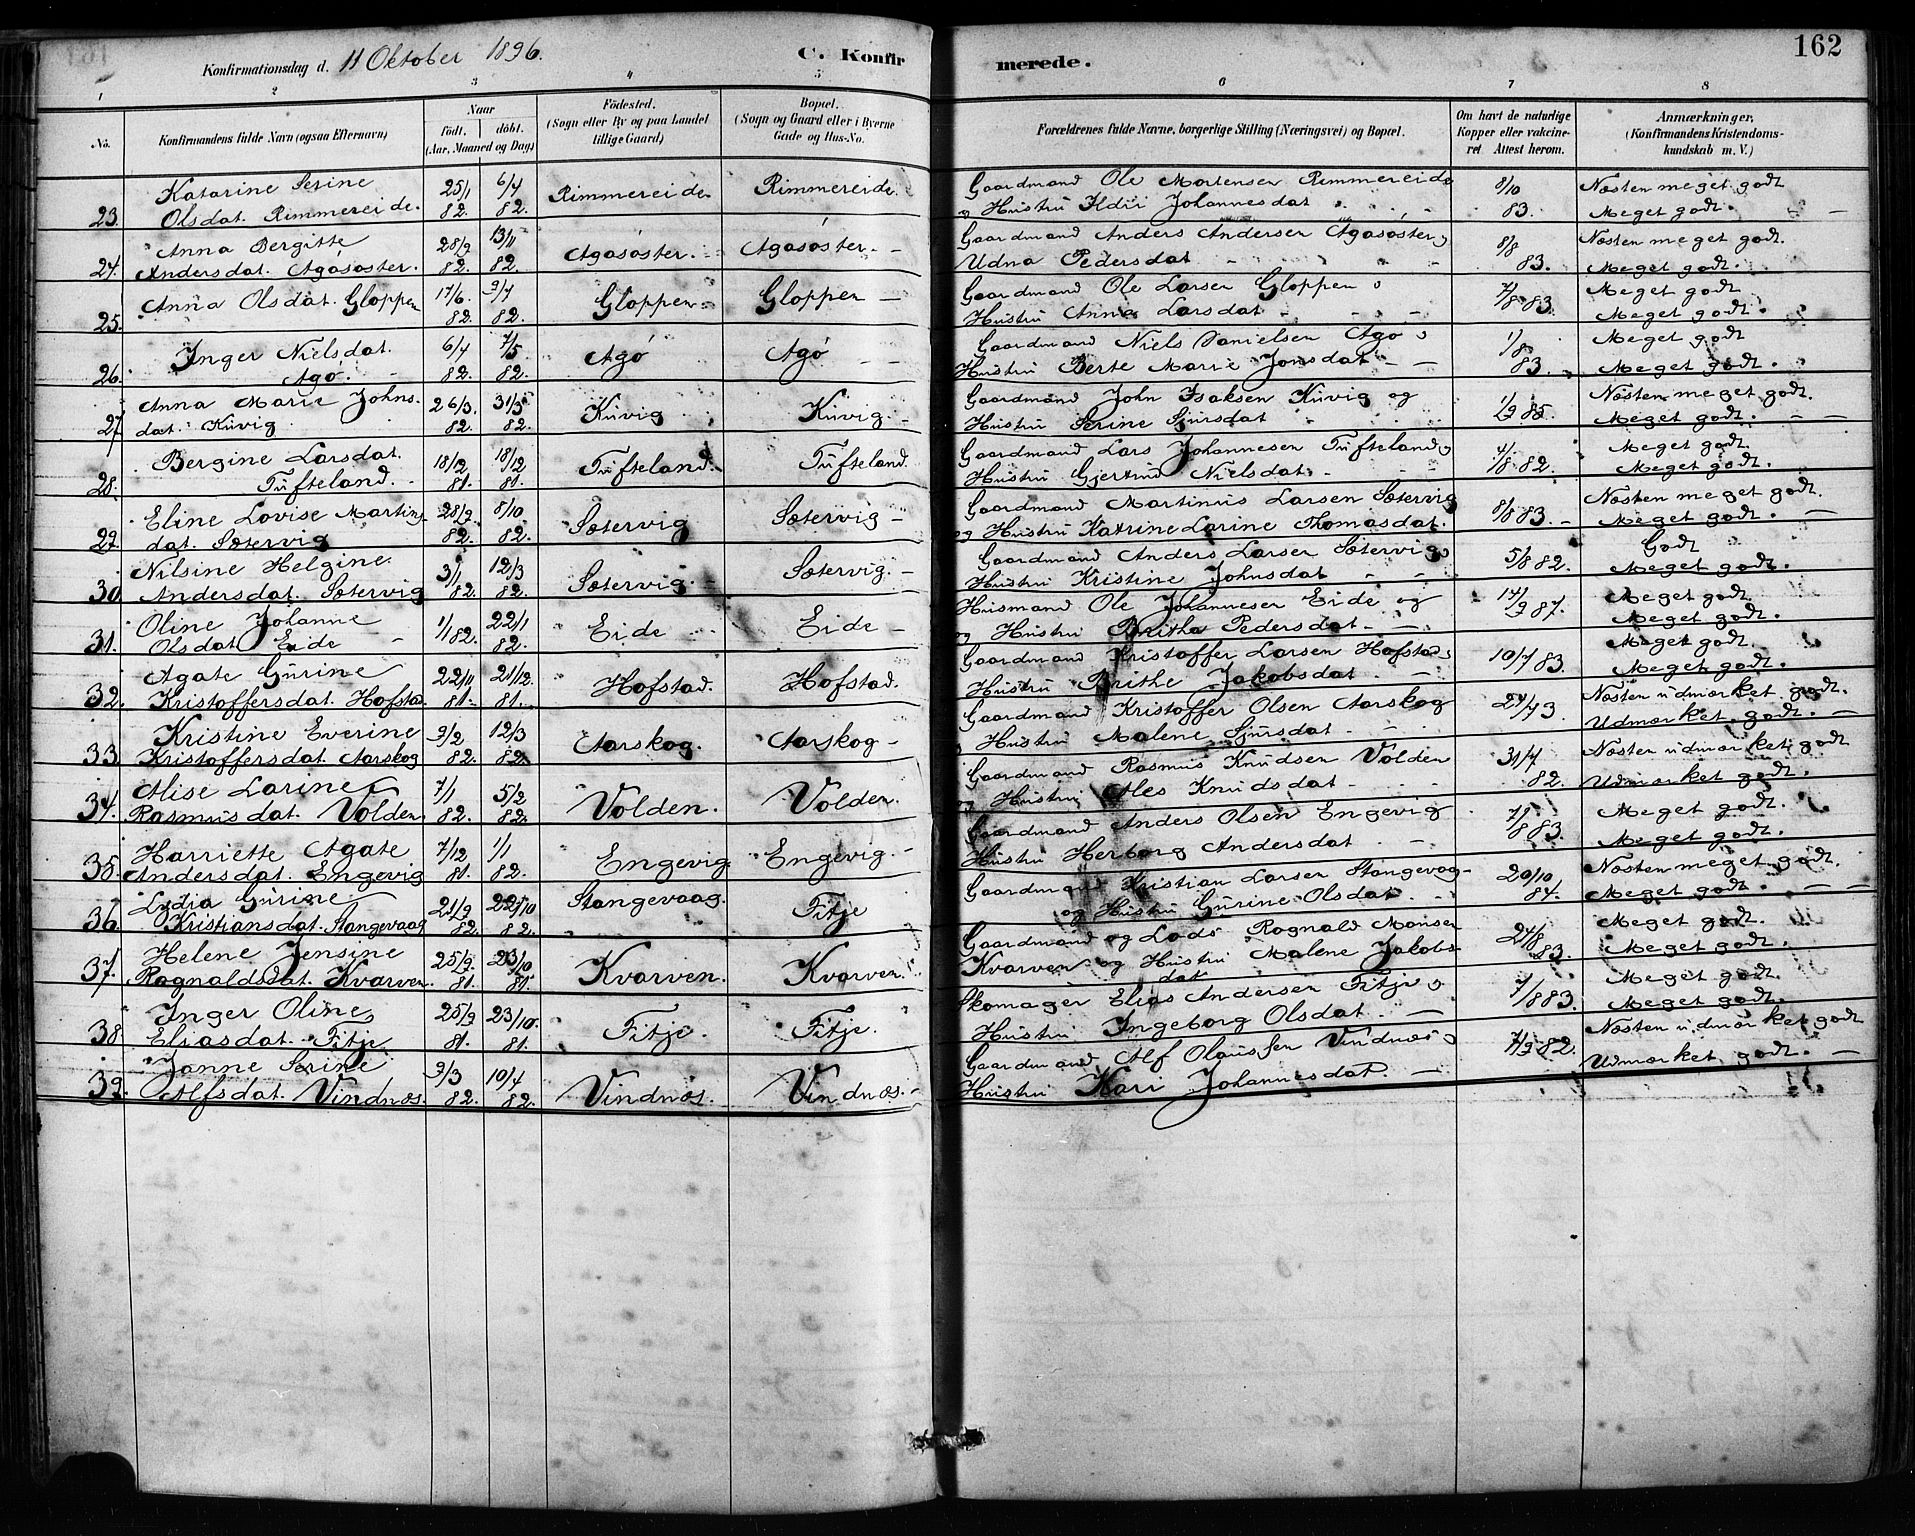 162
Konfirmationsdag d. 11 Oktober 1896.
C. Konfirmerede.
1 2 3 4 5 6 7 8
No.
Konfirmandens fulde Navn (ogsaa Efternavn)
Naar
födt. döbt.
(Aar, Maaned og Dag)
Födested.
(Sogn eller By og paa Landet
tillige Gaard)
Bopæl.
(Sogn og Gaard eller i Byerne
Gade og Hus-No.
Forældrenes fulde Navne, borgerlige Stilling (Næringsvei) og Bopæl.
Om havt de naturlige
Kopper eller vakcine-
ret Attest herom.
Anmærkninger,
(Konfirmandens Kristendoms-
kundskab m. V.)
23. Katarine Serine Olsdat. Rimmereide. 25/1 82. 6/4 82. Rimmereide Rimmereide. Gaardmand Ole Mortensen Rimmereide og Hustru Ildri Johannesdat 8/10 83. Næsten meget godt Meget godt.
24. Anna Bergitte Andersdat. Agasøster. 28/9 82. 13/11 82. Agasøster. Agasøster. Gaardmand Anders Andersen Agasøster Udna Pedersdat 8/8 83. Næsten meget godt. Meget godt.
25. Anna Olsdat. Gloppen 17/6. 82. 9/7 82. Gloppen Gloppen Gaardmand Ole Larsen Gloppen Hustru Anna Larsdat 7/8 83. Meget godt Meget godt.
26. Inger Nielsdat. Agø. 6/4 82. 7/5 82. Agø Agø Gaardmand Niels Danielsen Agø Hustru Berte Marie Jonsdat 1/8 83. Meget godt Meget godt.
27. Anna Marie Johnsdat. Kuvig 26/3. 82. 31/5 82. Kuvig Kuvig Gaardmand John Isaksen Kuvig og Hustru Serine Sjursdat 1/9 85. Næsten meget godt. Meget godt.
28. Bergine Larsdat. Tufteland. 18/12 81. 18/12 81. Tufteland. Tufteland Gaardmand Lars Johannesen Tufteland Hustru Gjertrud Nielsdat. 4/8 82. Meget godt. Meget godt.
29. Eline Lovise Martinsdat. Sætervig 28/9 82. 8/10 82. Sætervig Sætervig Gaardmand Martinus Larsen Sætervig og Hustru Katrine Larine Thomasdat. 8/8 83. Næsten meget godt. Meget godt.
30. Nilsine Helgine Andersdat. Sætervig 3/1 82. 12/3 82. Sætervig. Sætervig. Gaardmand Anders Larsen Sætervig Hustru Kristine Johnsdat 5/8 82. Godt Meget godt.
31. Oline Johanne Olsdat Eide 1/1 82. 22/1 82. Eide Eide Husmand Ole Johannesen Eide og og Hustru Brithe Pedersdat 14/9 87. Meget godt. Meget godt.
32. Agate Gurine Kristoffersdat. Hofstad. 22/11 81. 21/12. 81. Hofstad. Hofstad. Gaardmand Kristoffer Larsen Hofstad Hustru Brithe Jakobsdat. 10/7 83. Meget godt. Meget godt.
33. Kristine Everine Kristoffersdat. Aarskog 9/2 82. 12/3 82. Aarskog. Aarskog Gaardmand Kristoffer Olsen Aarskog Hustru Malene Sjursdat Næsten udmærket godt. Udmærket godt.
34. Alise Larine Rasmusdat. Volden. 7/1 82. 5/2 82. Volden. Volden. Gaardmand Rasmus Knudsen Volden og Hustru Ales Knudsdat 31/7 82. Næsten udmærket godt Udmærket godt.
35. Harriette Agate Andersdat. Engevig 7/12 81. 1/1 82. Engevig Engevig. Gaardmand Anders Olsen Engevig Hustru Herborg Andersdat 7/8 83. Meget godt. Meget godt.
36. Lydia Gurine Kristiansdat. Stangevaag 21/9 82. 22/10 82. Stangevaag. Fitje Gaardmand Kristian Larsen Stangevaag og Hustru Gurine Olsdat 20/10 84. Næsten meget godt. Meget godt.
37. Helene Jensine Ragnaldsdat. Kvarven. 25/9 81. 23/10 81. Kvarven. Kvarven. Gaardmand og Lods Ragnald Monsen Kvarven og Hustru Malene Jakobsdat 24/8 83. Meget godt. Meget godt.
38. Inger Oline Eliasdat. Fitje 25/9 81. 23/10. 81. Fitje. Fitje. Skomager Elias Andersen Fitje Hustru Ingeborg Olsdat 7/8 83. Meget godt. Meget godt.
39. Janne Serine Alfsdat. Vindnæs. 9/3 82. 10/4 82. Vindnæs. Vindnæs. Gaardmand Alf Olaussen Vindnæs Hustru Kari Johannesdat. 7/9 82. Næsten udmærket godt Udmærket godt.